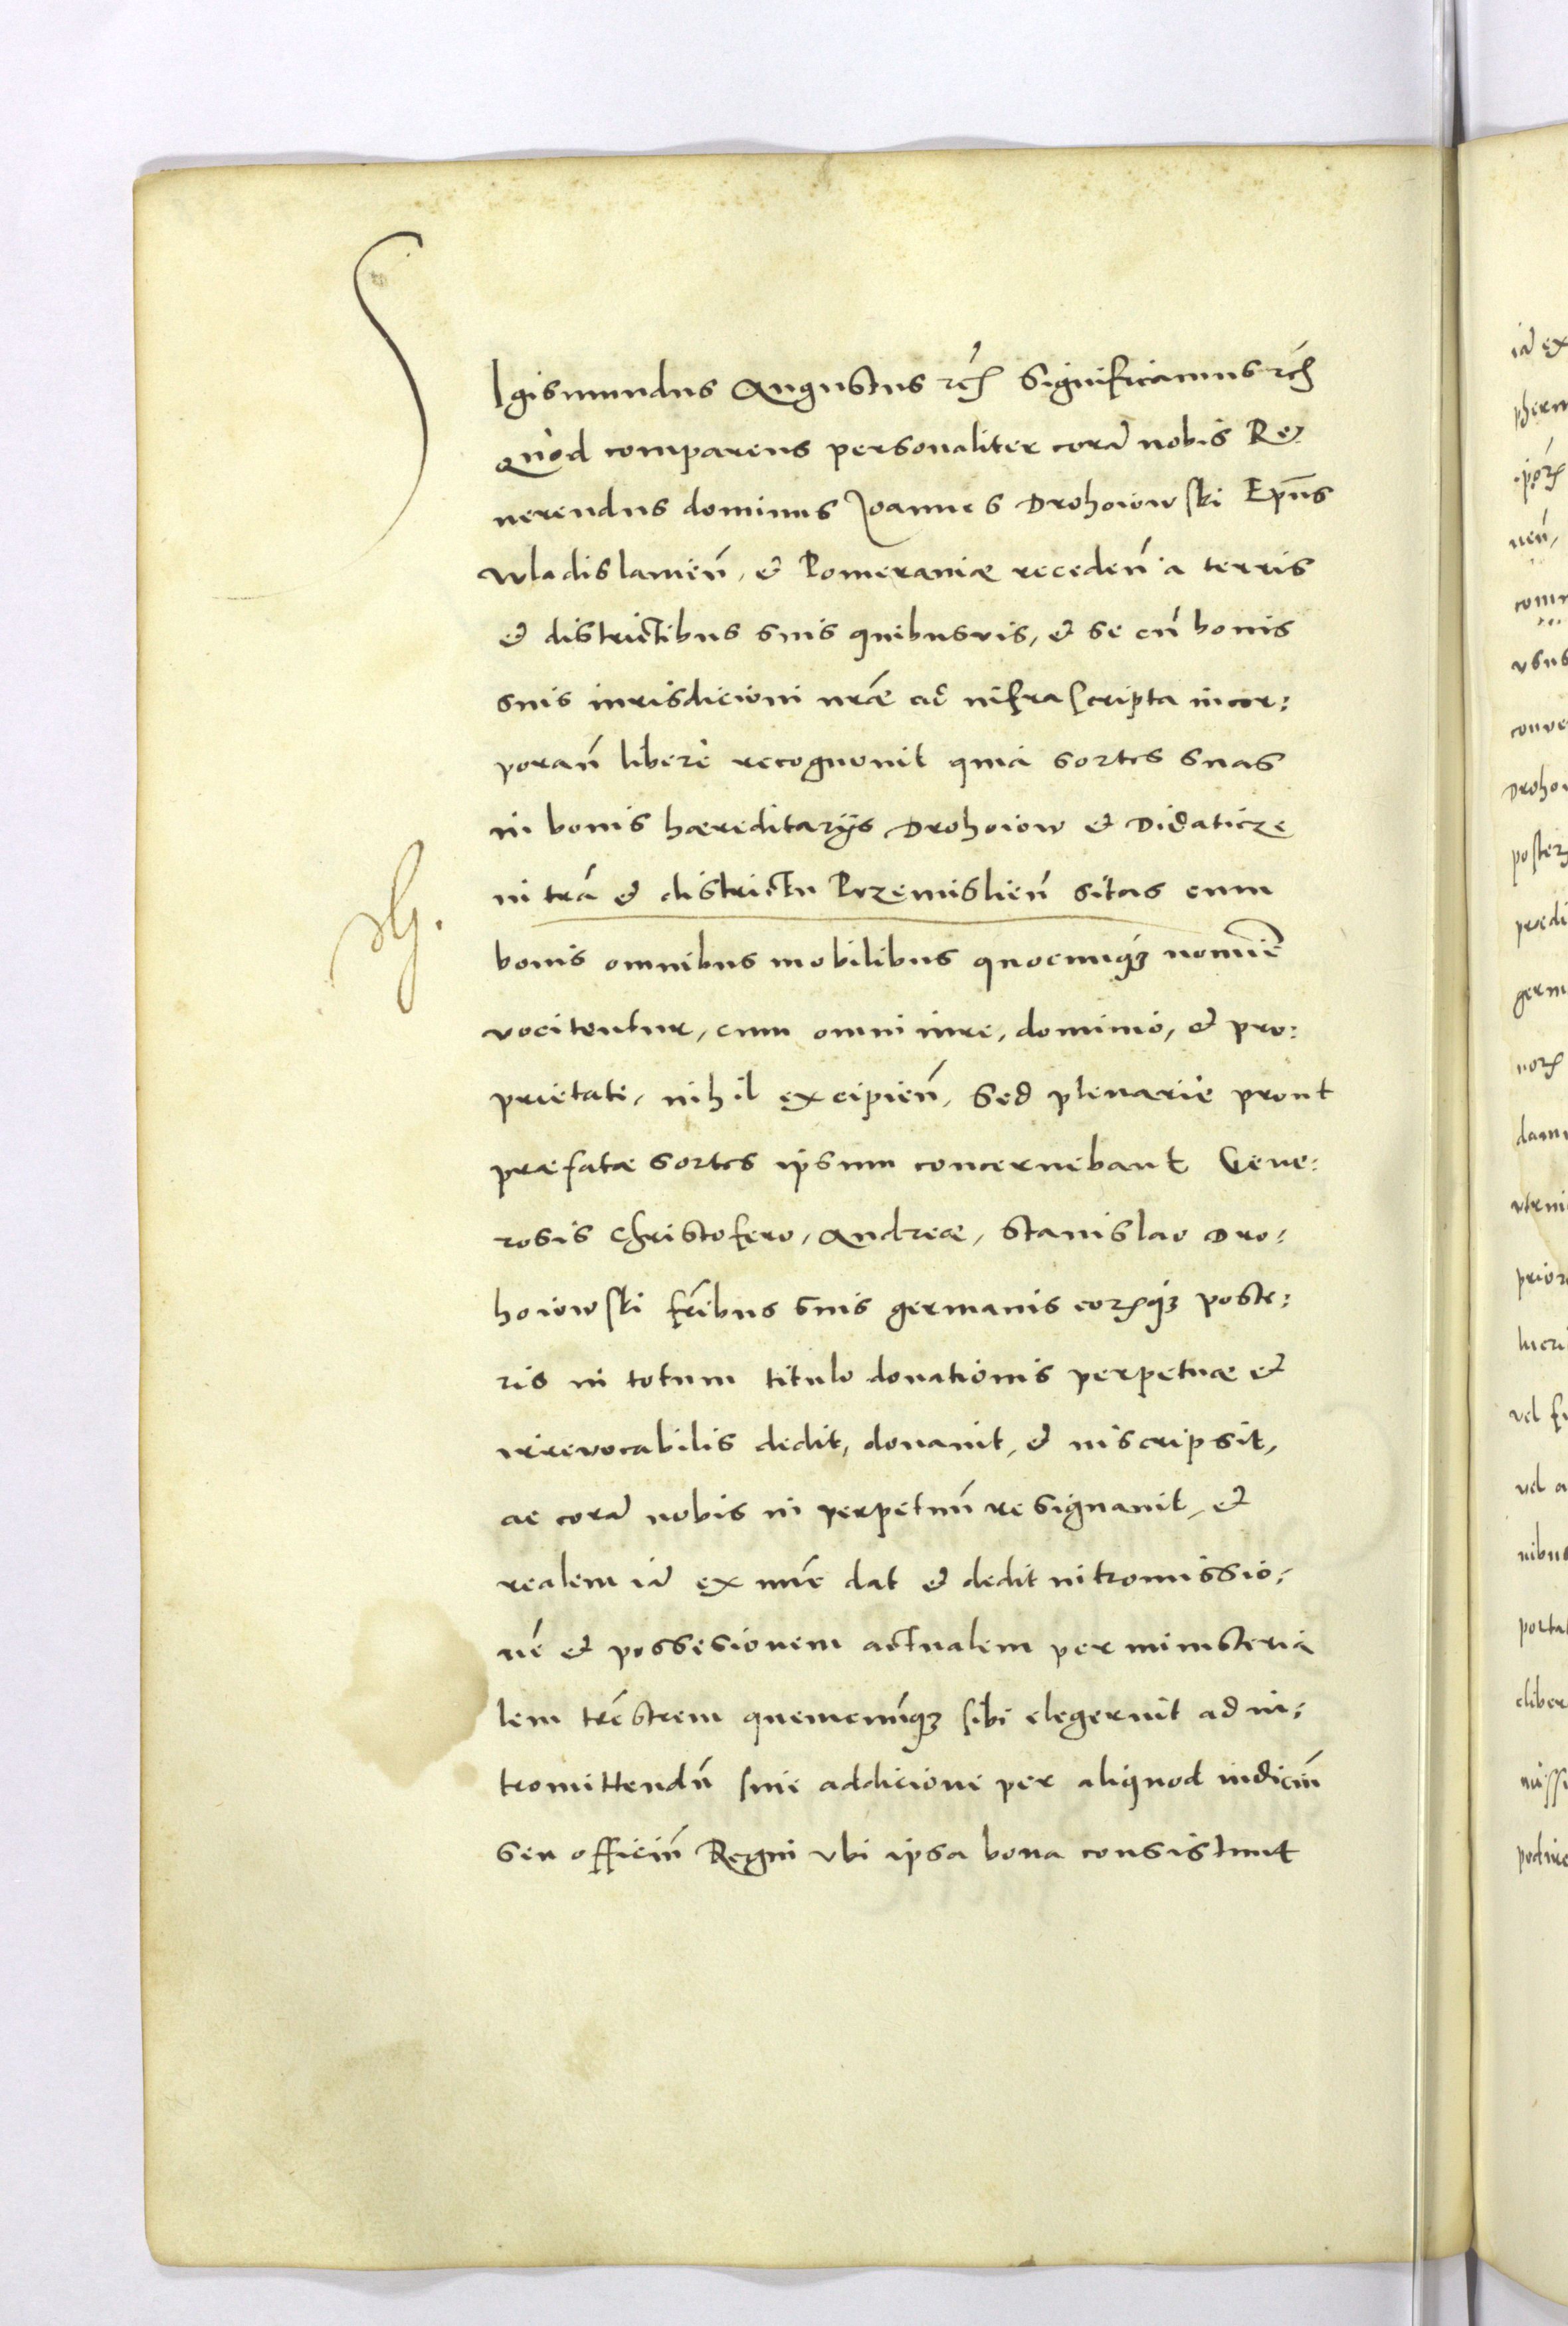 SIgismundus Augustus rc̃ Significamus rc̃
Quod comparens personaliter corã nobis Re
uerendus dominus Joannes Drohoiowski Epũs
Wladislauień, et Pomeraniæ recedeń a terris
et districtibus suis quibusvis, et se cũ bonis
suis iurisdicioni nr̃æ ad infrascripta incor:
porań liberè recognouit quia sortes suas
in bonis hæreditarijs Drohoiow et Didaticze
in tr̃a et districtu Przemislień sitas cum
bonis omnibus mobilibus quocunq₃ nomiñe
vocitentur, cum omni iure, dominio, et pro:
prietate, nihil excipień, Sed plenarie prout
præfatæ sortes ipsum concernebant Gene:
rosis Christofero, Andreæ, Stanislao Dro:
hoiowski fr̃ibus suis germanis eorꝝq₃ poste:
ris in totum titulo donationis perpetuæ et
irrevocabilis dedit, donauit, et inscripsit,
ac corã nobis in perpetuũ resignauit, et
realem iã ex nũc dat et dedit intromissio:
nẽ et possesionem actualem per ministeria
lem tr̃estrem quemcunq₃ sibi elegerint ad in:
tromittendũ sine addicione per aliquod iudiciũ
seu officiũ Regni vbi ipsa bona consistunt
iã ex
nẽń,
comm
vsus
conve
Droho
poster
prædi
germ
norꝝ
damn
vtrui
prior
lucri
vel fr
vel a
nibus
porta
eliber
missi